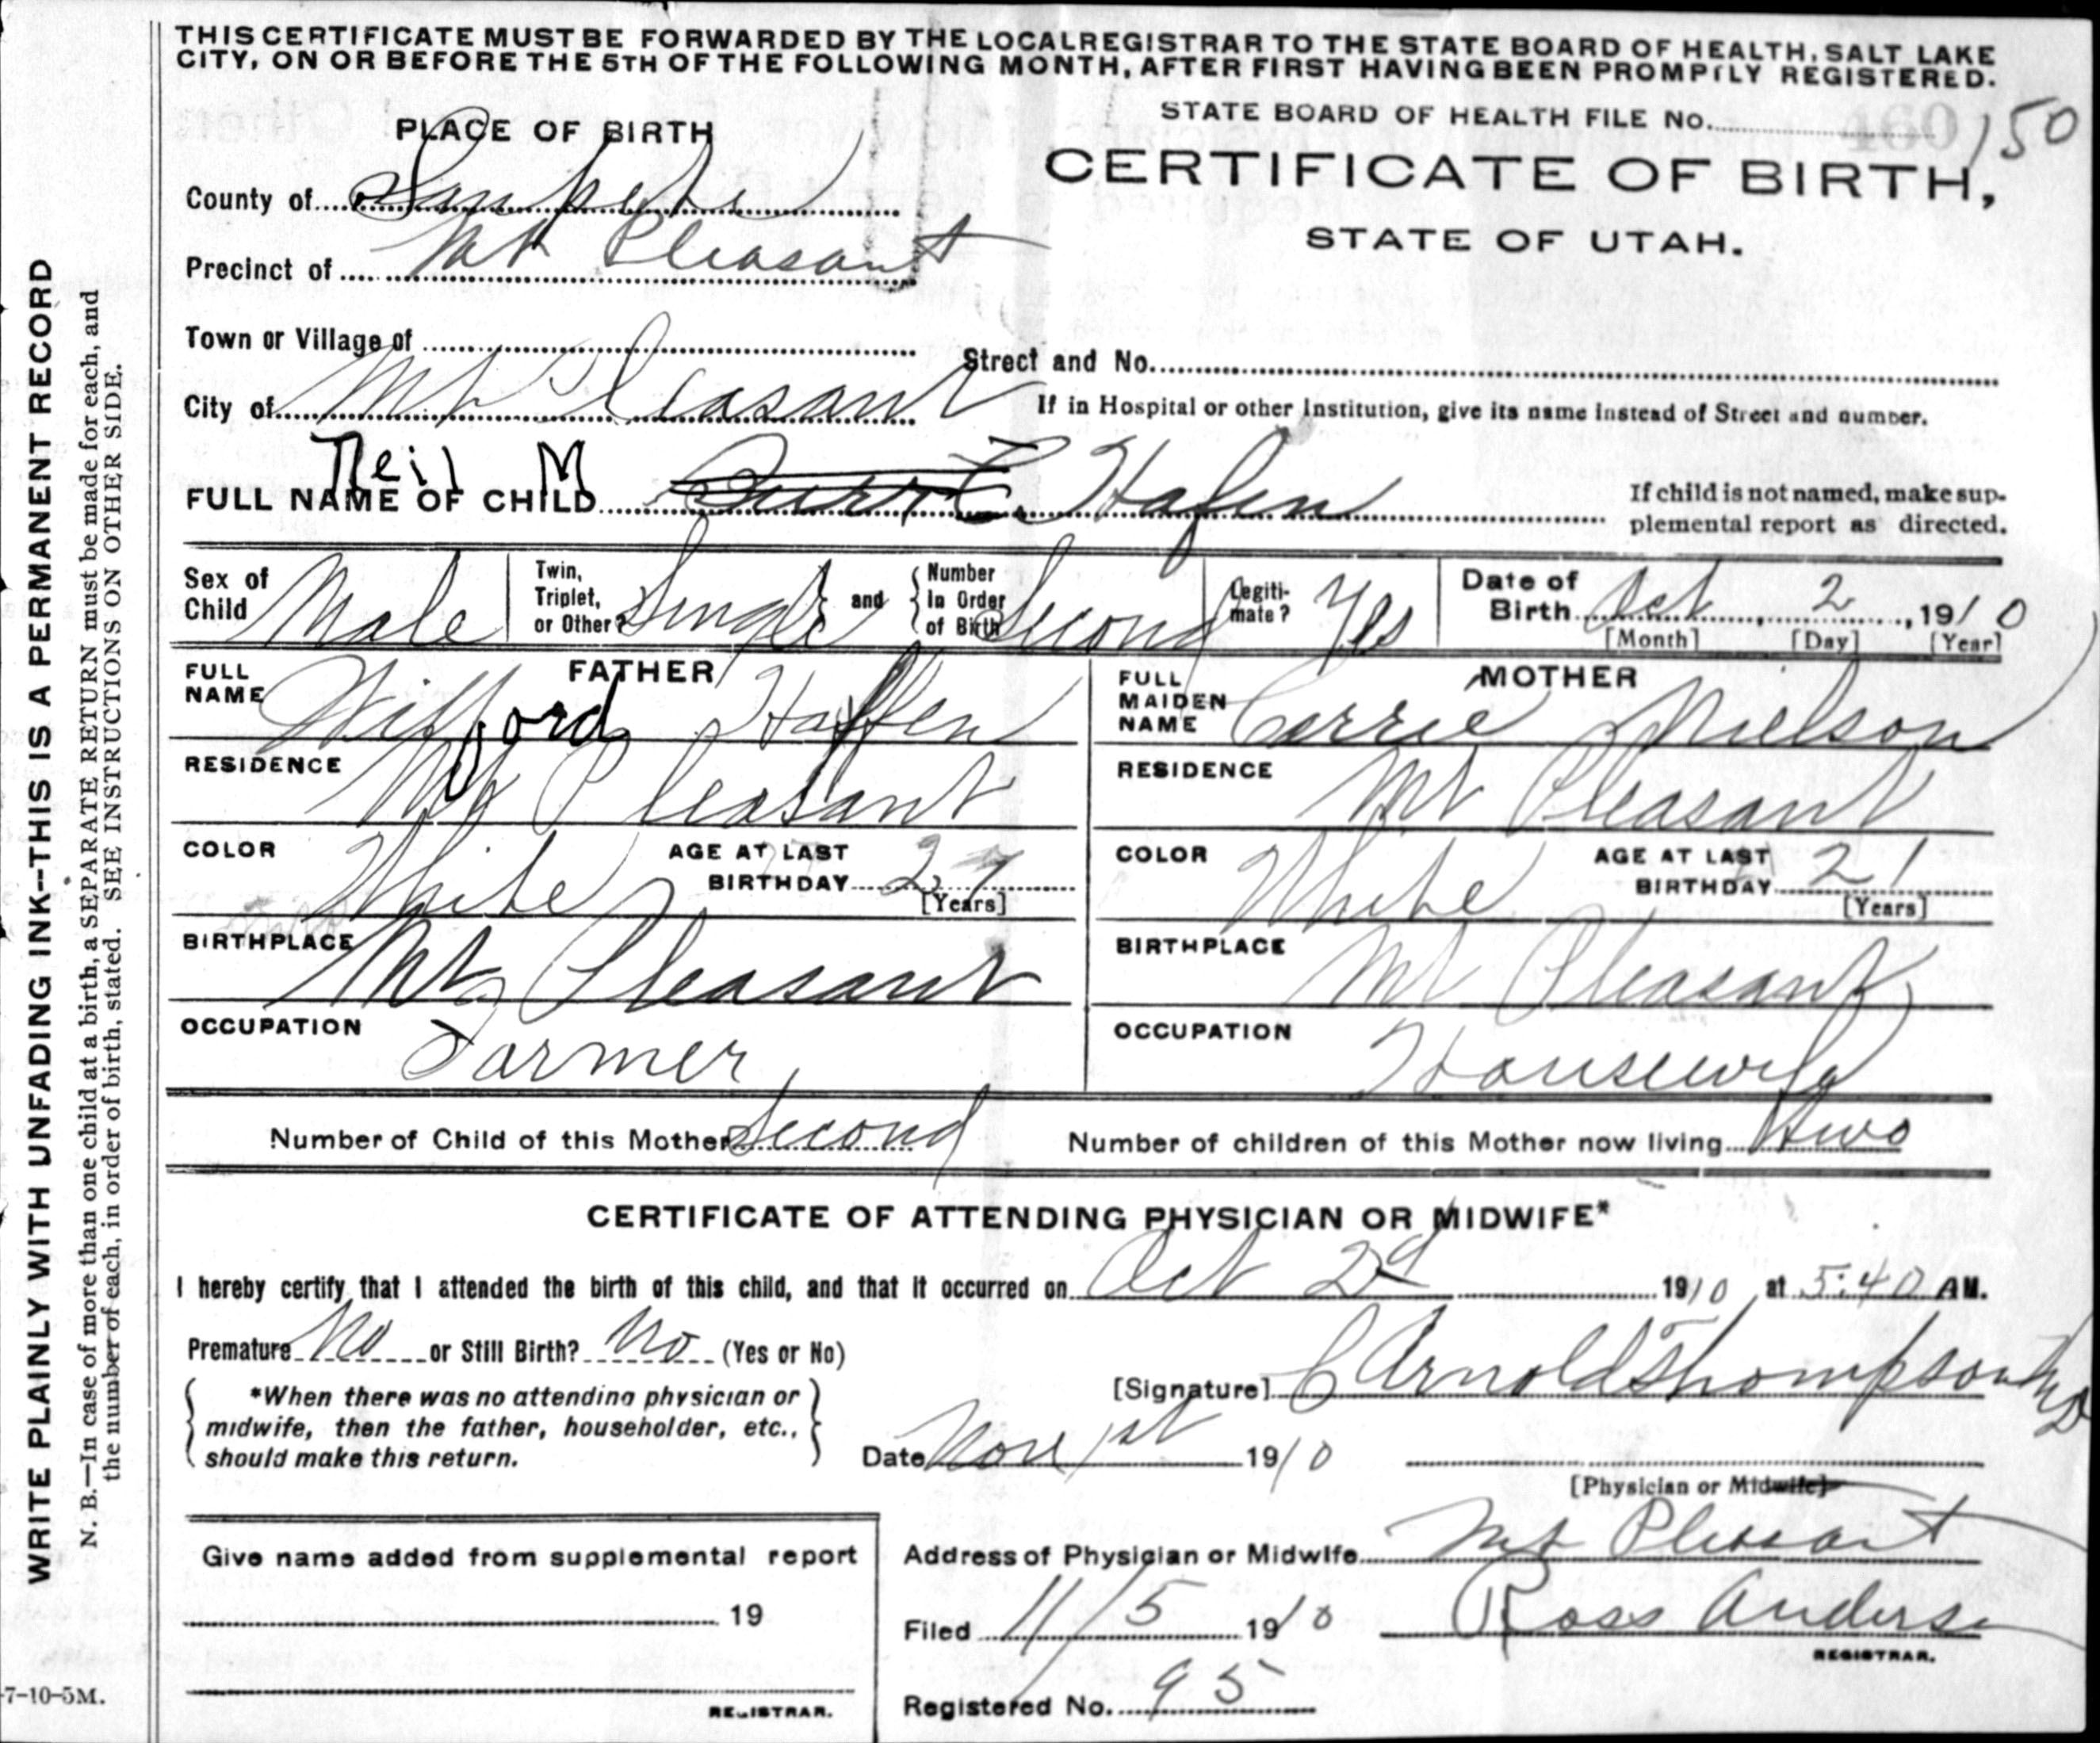 THIS CERTIFICATE MUST BE FORWARDED BY THE LOCAL REGISTRAR TO THE STATE BOARD OF HEALTH, SALT LAKE
CITY, ON OR BEFORE THE 5TH OF THE FOLLOWING MONTH, AFTER FIRST HAVING BEEN PROMPTLY REGISTERED.
STATE BOARD OF HEALTH FILE No. 460 150
PLACE OF BIRTH
CERTIFICATE OF BIRTH,
STATE OF UTAH.
County of Sanpete
Precinct of Mt Pleasant
Town or Village of
Street and No.
City of Mt Pleasant
If in Hospital or other Institution, give its name instead of Street and number.
Neil M
FULL NAME OF CHILD Hafen
If child is not named, make sup-
plemental report as directed.
Sex of Child Male
Twin, Triplet, or Other? Single and Number In Order of Birth Second
Legiti-mate? Yes
Date of Birth Oct 2, 1910
[Month] [Day] [Year]
FATHER
FULL NAME Wifford Haffen
RESIDENCE Mt Pleasant
COLOR White AGE AT LAST BIRTHDAY 27
[Years]
BIRTHPLACE Mt Pleasant
OCCUPATION Farmer
MOTHER
FULL MAIDEN NAME Carrie Nielson
RESIDENCE Mt Pleasant
COLOR White AGE AT LAST BIRTHDAY 21
[Years]
BIRTHPLACE Mt Pleasant
OCCUPATION Housewife
Number of Child of this Mother Second
Number of children of this Mother now living two
CERTIFICATE OF ATTENDING PHYSICIAN OR MIDWIFE*
I hereby certify that I attended the birth of this child, and that it occurred on Oct 2d 1910 at 5:40 AM.
Premature No or Still Birth? No (Yes or No)
[Signature] C Arnold Thompson MD
*When there was no attending physician or
midwife, then the father, householder, etc.,
should make this return.
Date Nov 1st 1910
[Physician or Midwife]
Give name added from supplemental report
19
REGISTRAR.
Address of Physician or Midwife Mt Pleasant
Filed 11/5 1910 Ross Anderson
REGISTRAR.
Registered No. 95
7-10-5M.
WRITE PLAINLY WITH UNFADING INK--THIS IS A PERMANENT RECORD
N. B.—In case of more than one child at a birth, a SEPARATE RETURN must be made for each, and
the number of each, in order of birth, stated. SEE INSTRUCTIONS ON OTHER SIDE.